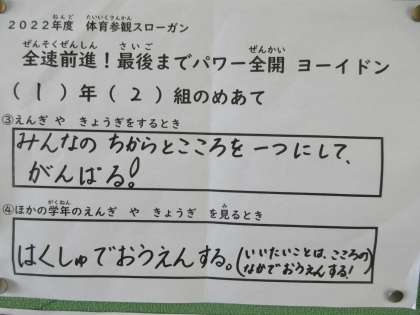 2022年度 体育参観スローガン
全速前進！最後までパワー全開 ヨーイドン
(1)年(2)組のめあて
③えんぎ や きょうぎをするとき
みんなの ちからとこころを 一つにして、
がんばる！
④ほかの学年のえんぎ や きょうぎ を見るとき
はくしゅでおうえんする。(いいたいことは、こころの
なかでおうえんする！)